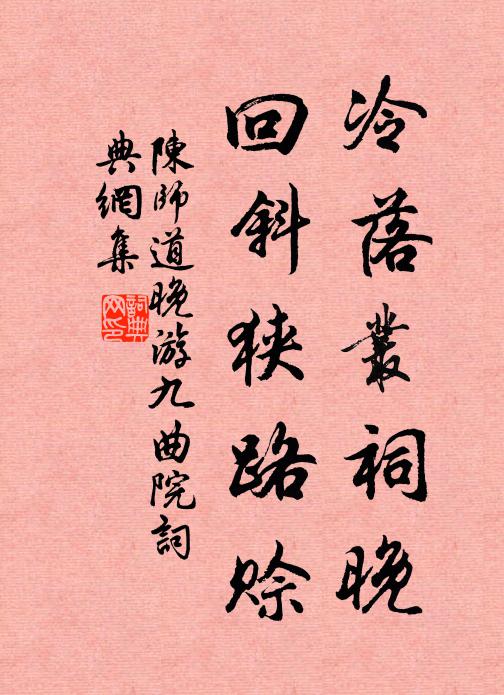 冷落叢祠晚
回斜狹路賒
陳師道晚游九曲院詞
典網集
詞典网印